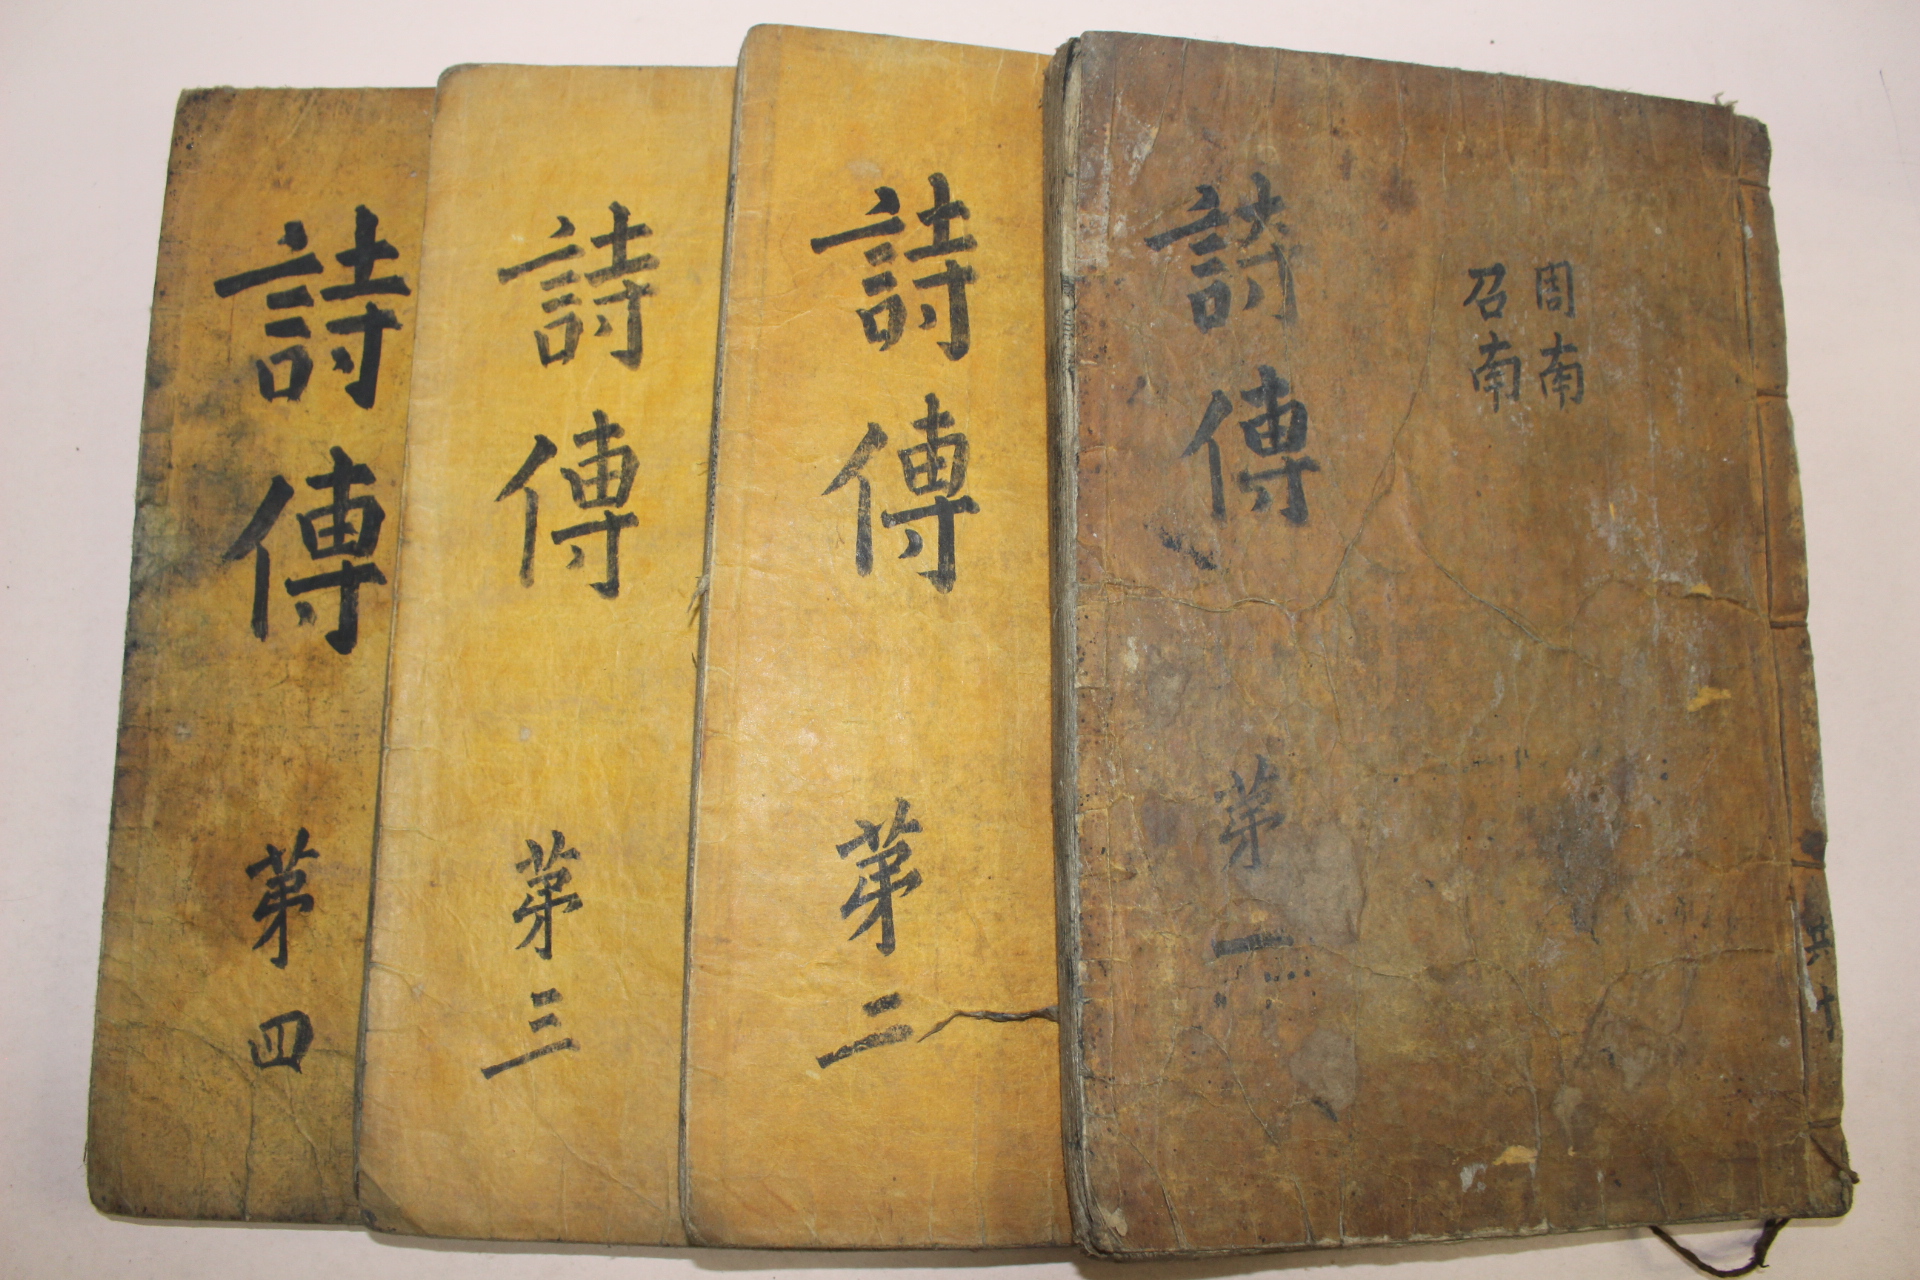 周南
召南
詩傳 第一
共十
詩傳 第二
詩傳 第三
詩傳 第四